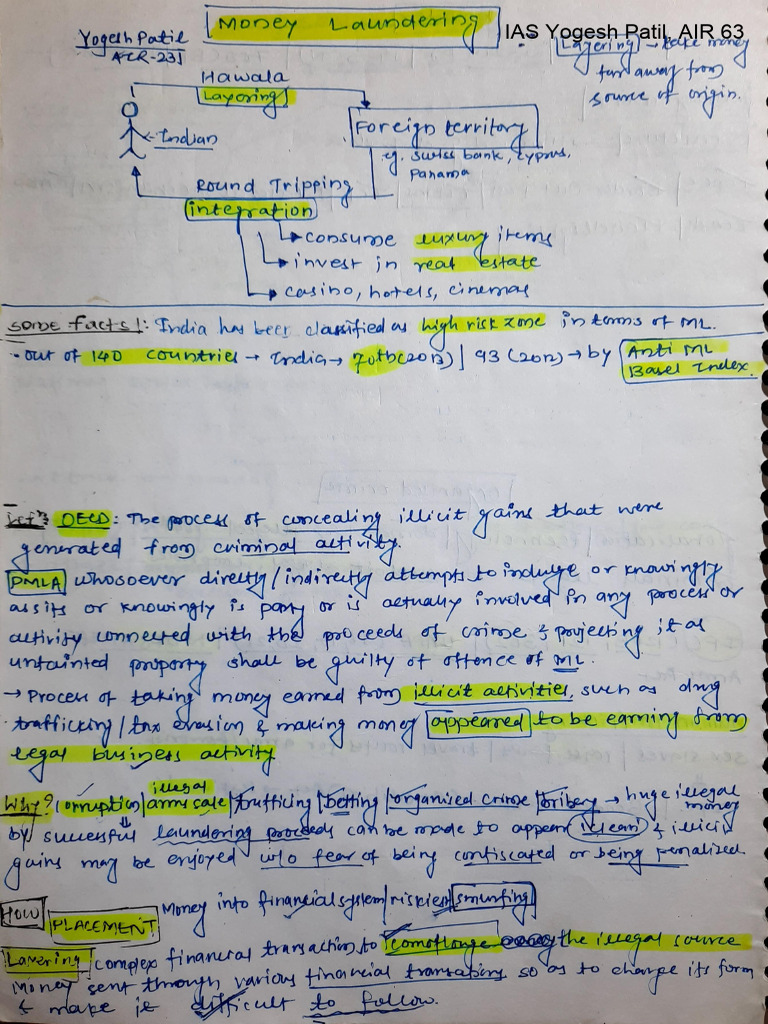 Money Laundering
IAS Yogesh Patil, AIR 63
Yogesh Patil
AIR-231
Layering → take money
far away from
source of origin.
Hawala
Layering
Indian
Foreign territory
eg. swiss bank, cyprus,
Panama
Round Tripping
integration
→ consume luxury items
→ invest in real estate
→ casino, hotels, cinemas
some facts!: India has been classified as high risk zone in terms of ML.
• out of 140 countries → India → 70th (2013) | 93 (2012) → by Anti ML
Basel Index.
Defn OECD: The process of concealing illicit gains that were
generated from criminal activity.
PMLA whosoever directly/indirectly attempts to indulge or knowingly
assits or knowingly is party or is actually involved in any process or
activity connected with the proceeds of crime & projecting it as
untainted property shall be guilty of offence of ML.
→ Process of taking money earned from illicit activities, such as drug
trafficking/tax evasion & making money appeared to be earning from
legal business activity
Why? corruption | illegal arms sale | trafficking | betting | organised crime | bribery → huge illegal money
by successful laundering proceeds can be made to appear clean & illicit
gains may be enjoyed w/o fear of being confiscated or being penalized
How
PLACEMENT Money into financial system | riskiest | smurfing
Layering complex financial transaction to comoflouge the illegal source
Money sent through various financial transactions so as to change its form
& make it difficult to follow.